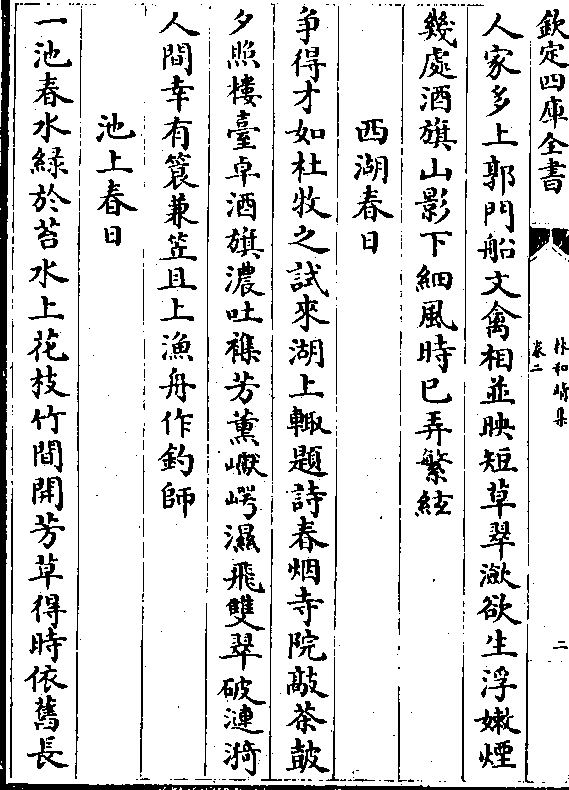 欽定四庫全書
林和靖集
卷二
二
人家多上郭門船文禽相並映短草翠瀲欲生浮嫩煙
幾處酒旗山影下細風時已弄繁絃
西湖春日
争得才如杜牧之試來湖上輙題詩春烟寺院敲茶皷
夕照樓臺卓酒旗濃吐襍芳薰巘崿濕飛雙翠破漣漪
人間幸有簑兼笠且上漁舟作釣師
池上春日
一池春水綠於苔水上花枝竹間開芳草得時依舊長